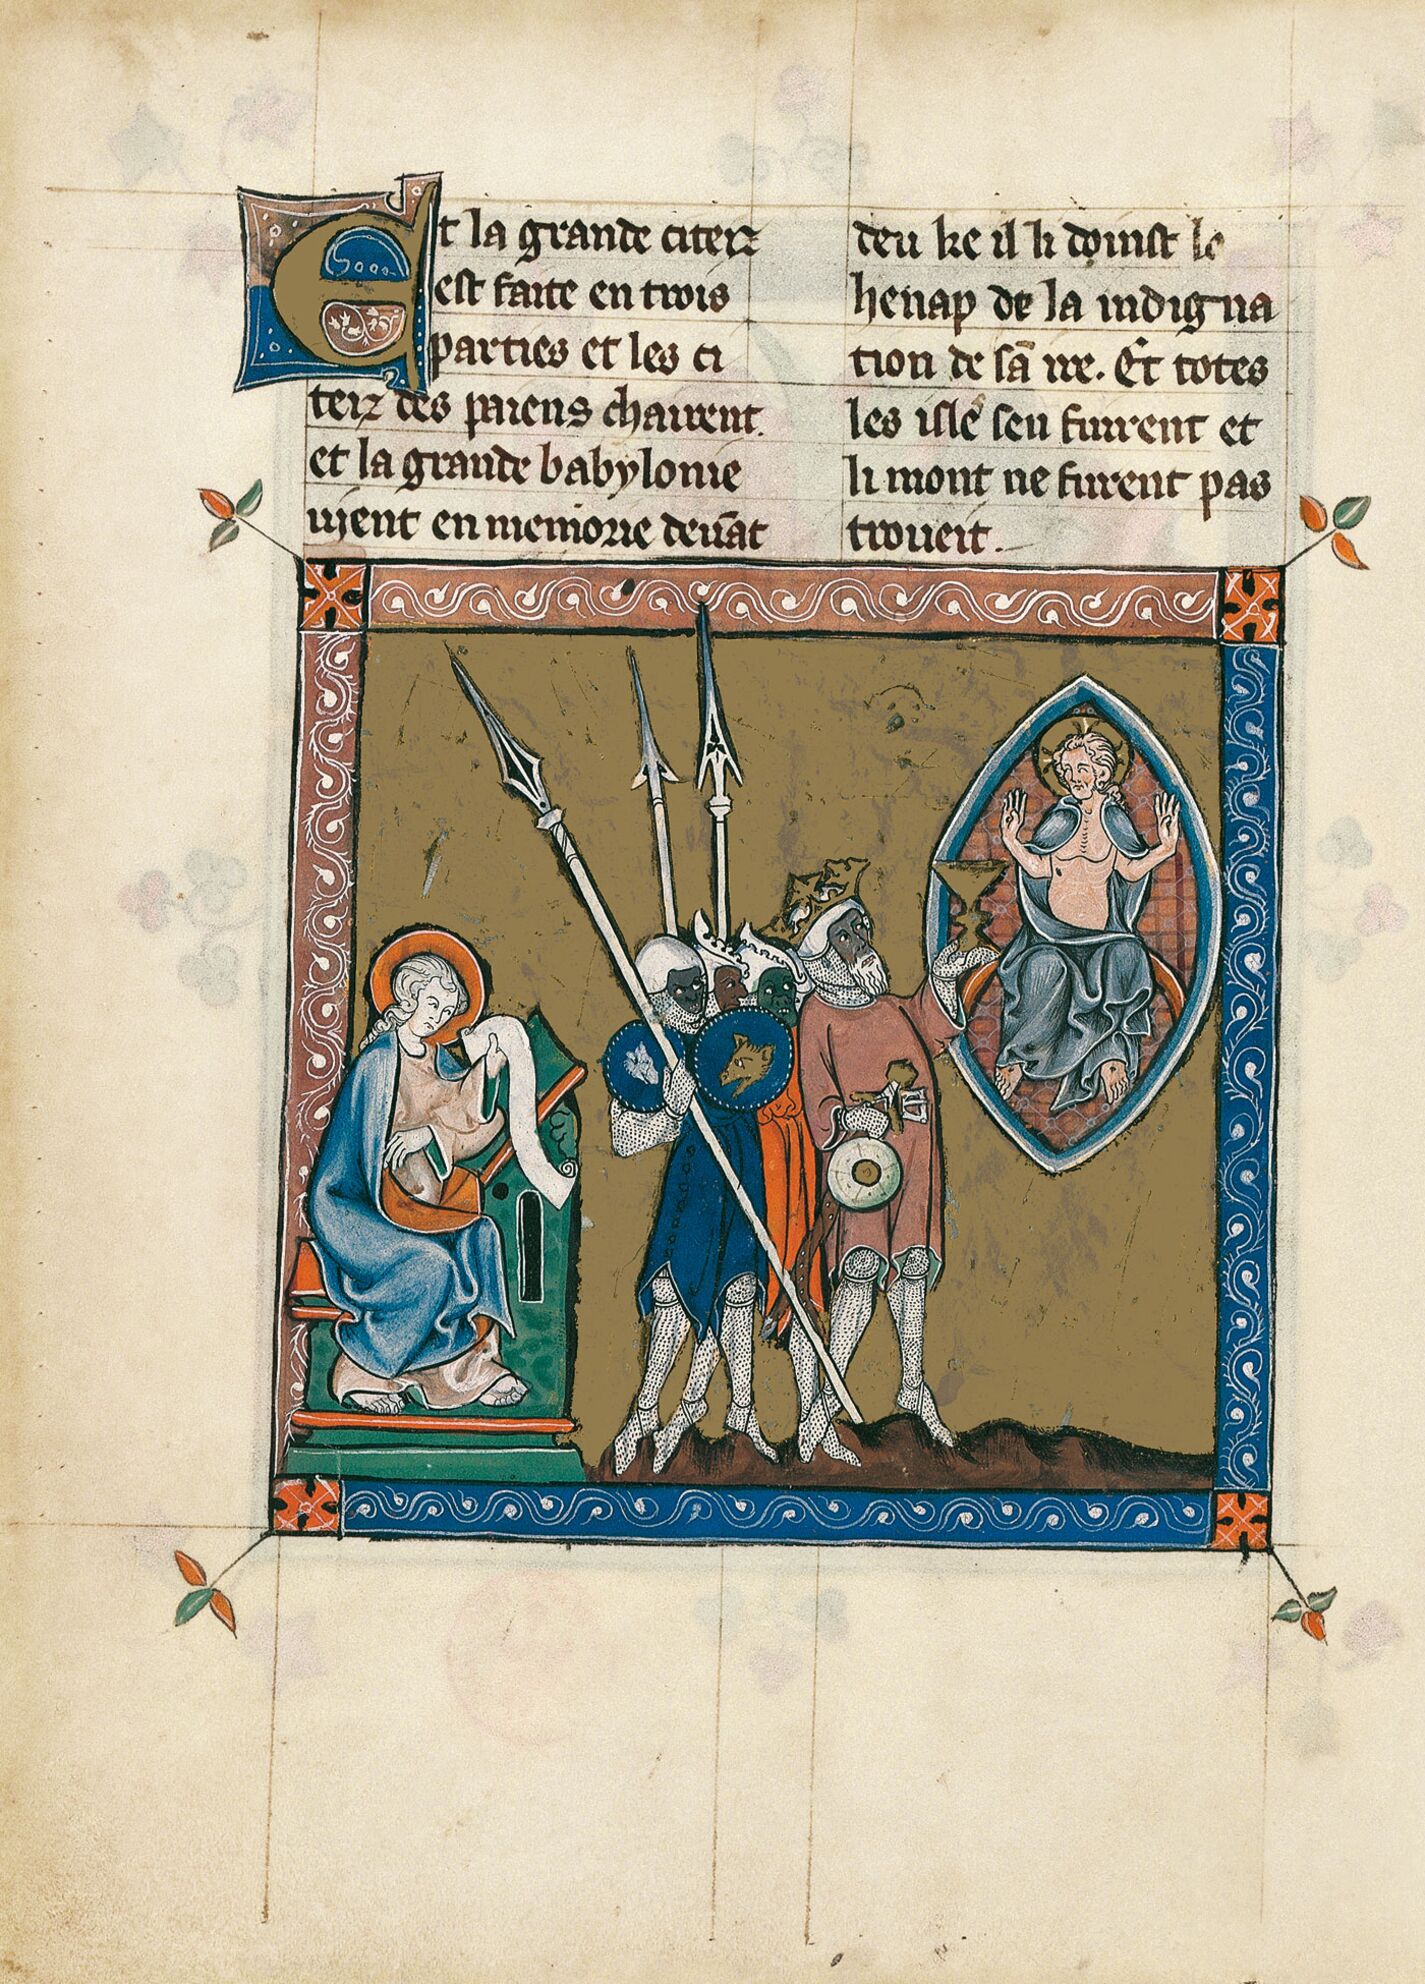 Et la grande citeiz
est faite en trois
parties et les ci
teiz des paiens chairent.
et la grande babylonie
vient en memorie deuāt
deu ke il li doinst le
henap de la indigna
tion de sā ire. Et totes
les isles en fuirent et
li mont ne furent pas
troueit.